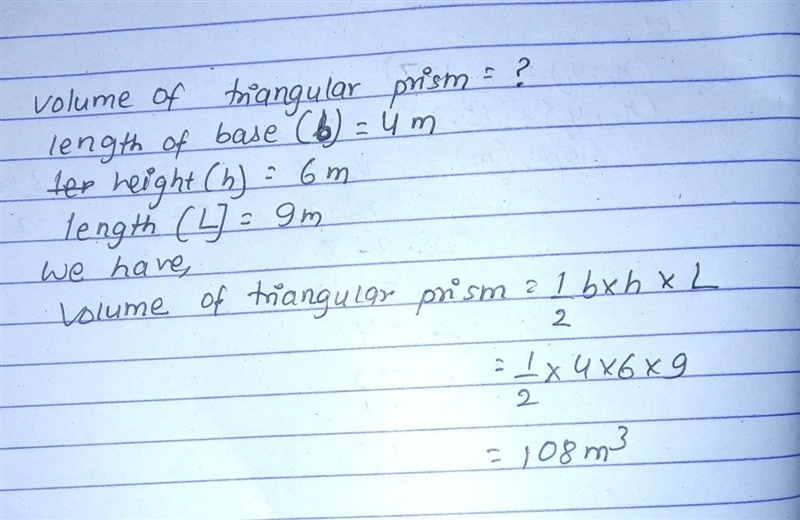 volume of triangular prism = ?
length of base (b) = 4 m
height (h) = 6 m
length (L] = 9m
We have,
Volume of triangular prism = 1/2 b×h × L
= 1/2 × 4×6×9
= 108 m³